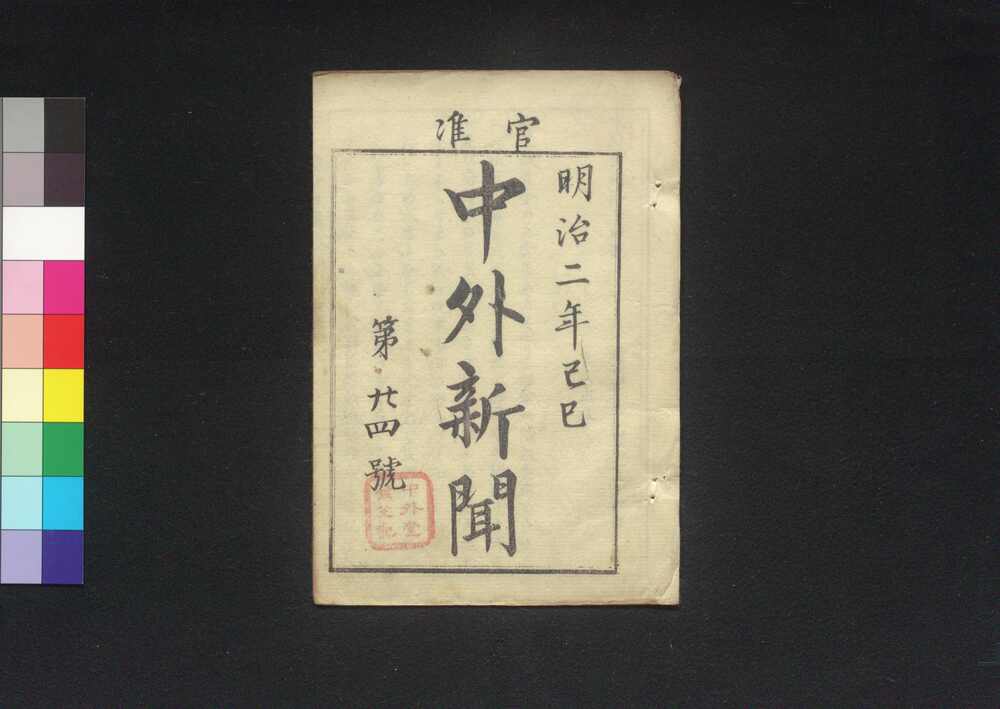 官准
明治二年己巳
中外新聞
第廿四號
中外堂